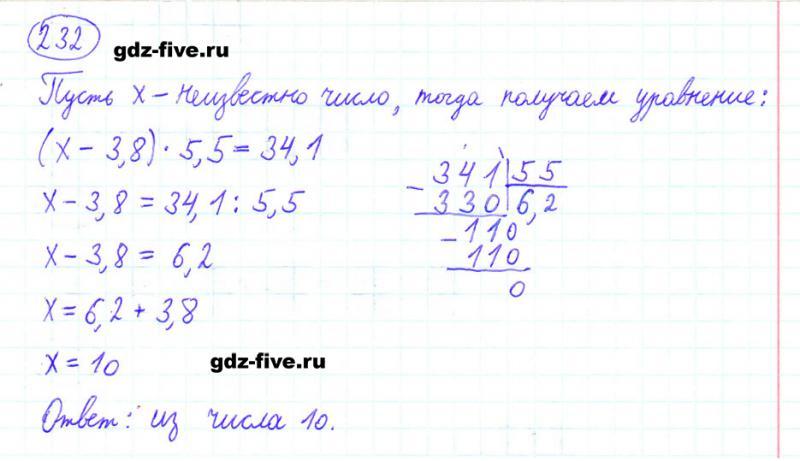 232
gdz-five.ru
Пусть x – неизвестно число, тогда получаем уравнение:
(x – 3,8) · 5,5 = 34,1
x – 3,8 = 34,1 : 5,5
x – 3,8 = 6,2
x = 6,2 + 3,8
x = 10
gdz-five.ru
Ответ: из числа 10.
– 341 | 55
330 | 6,2
– 110
110
0